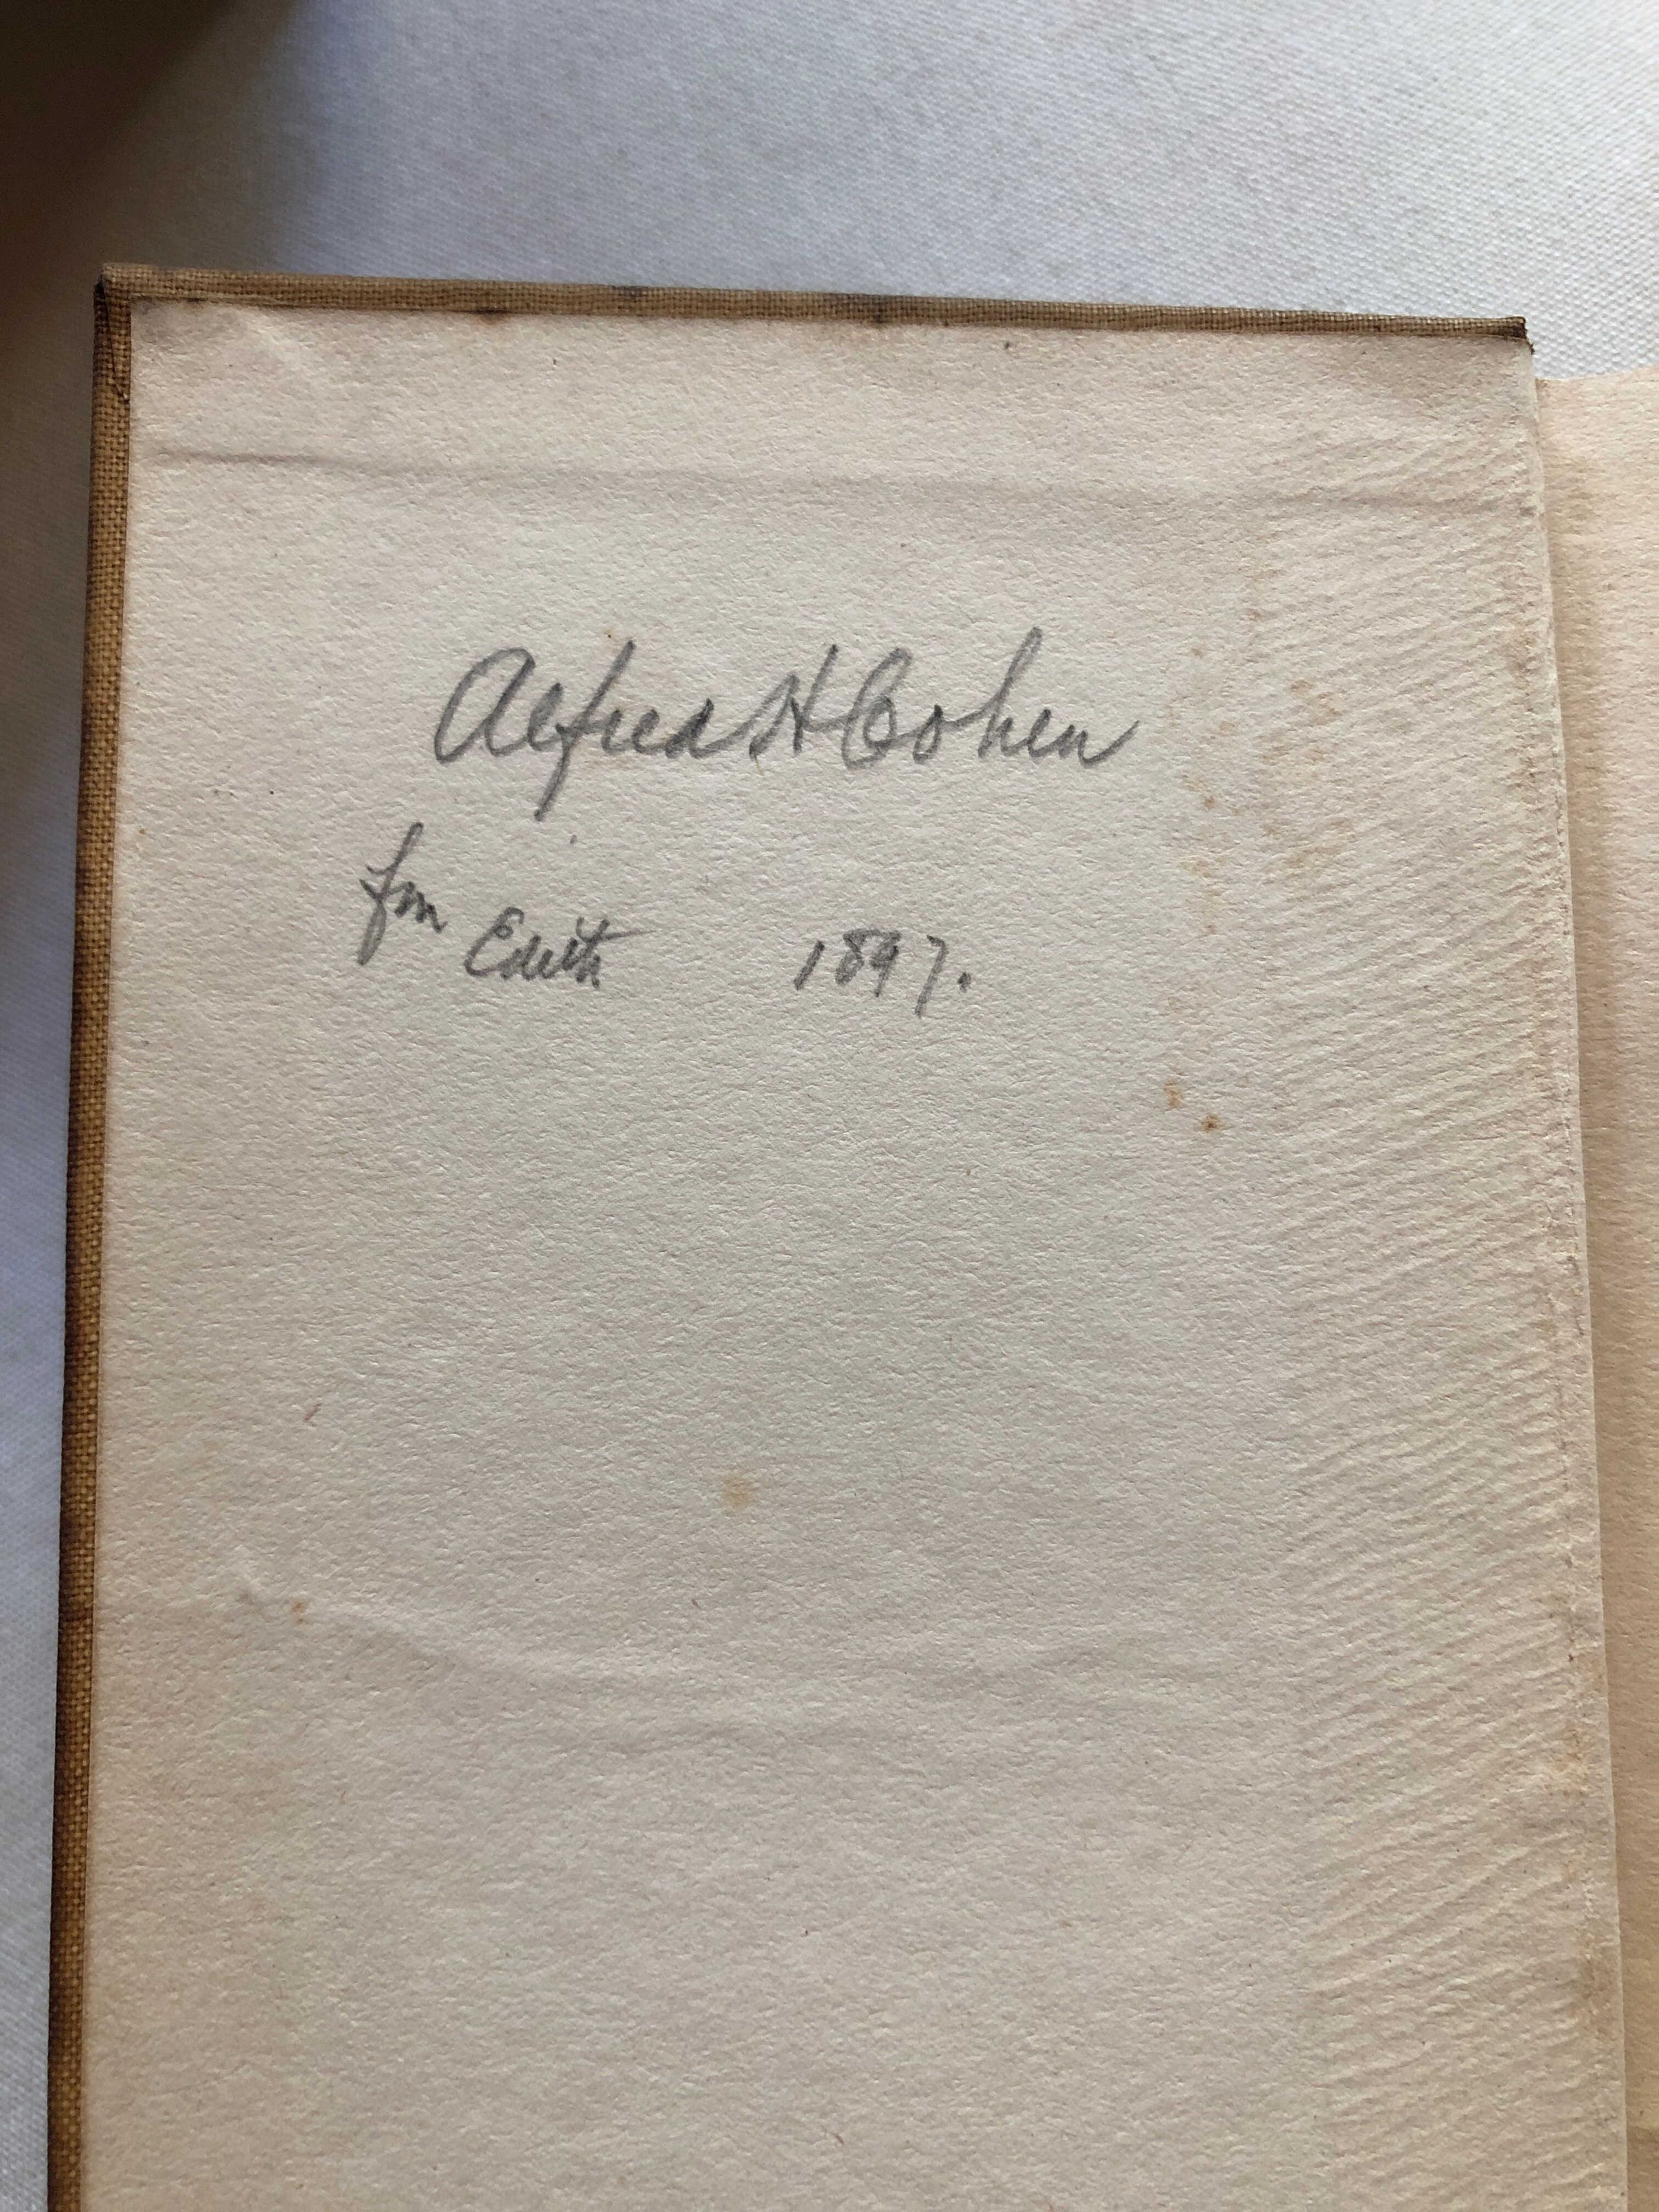 Alfred H Cohen
fm Edith 1897.